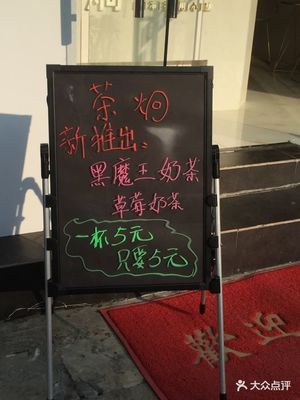 茶炯
新推出:
黑魔王奶茶
草莓奶茶
一杯5元
只要5元
歡迎
大众点评